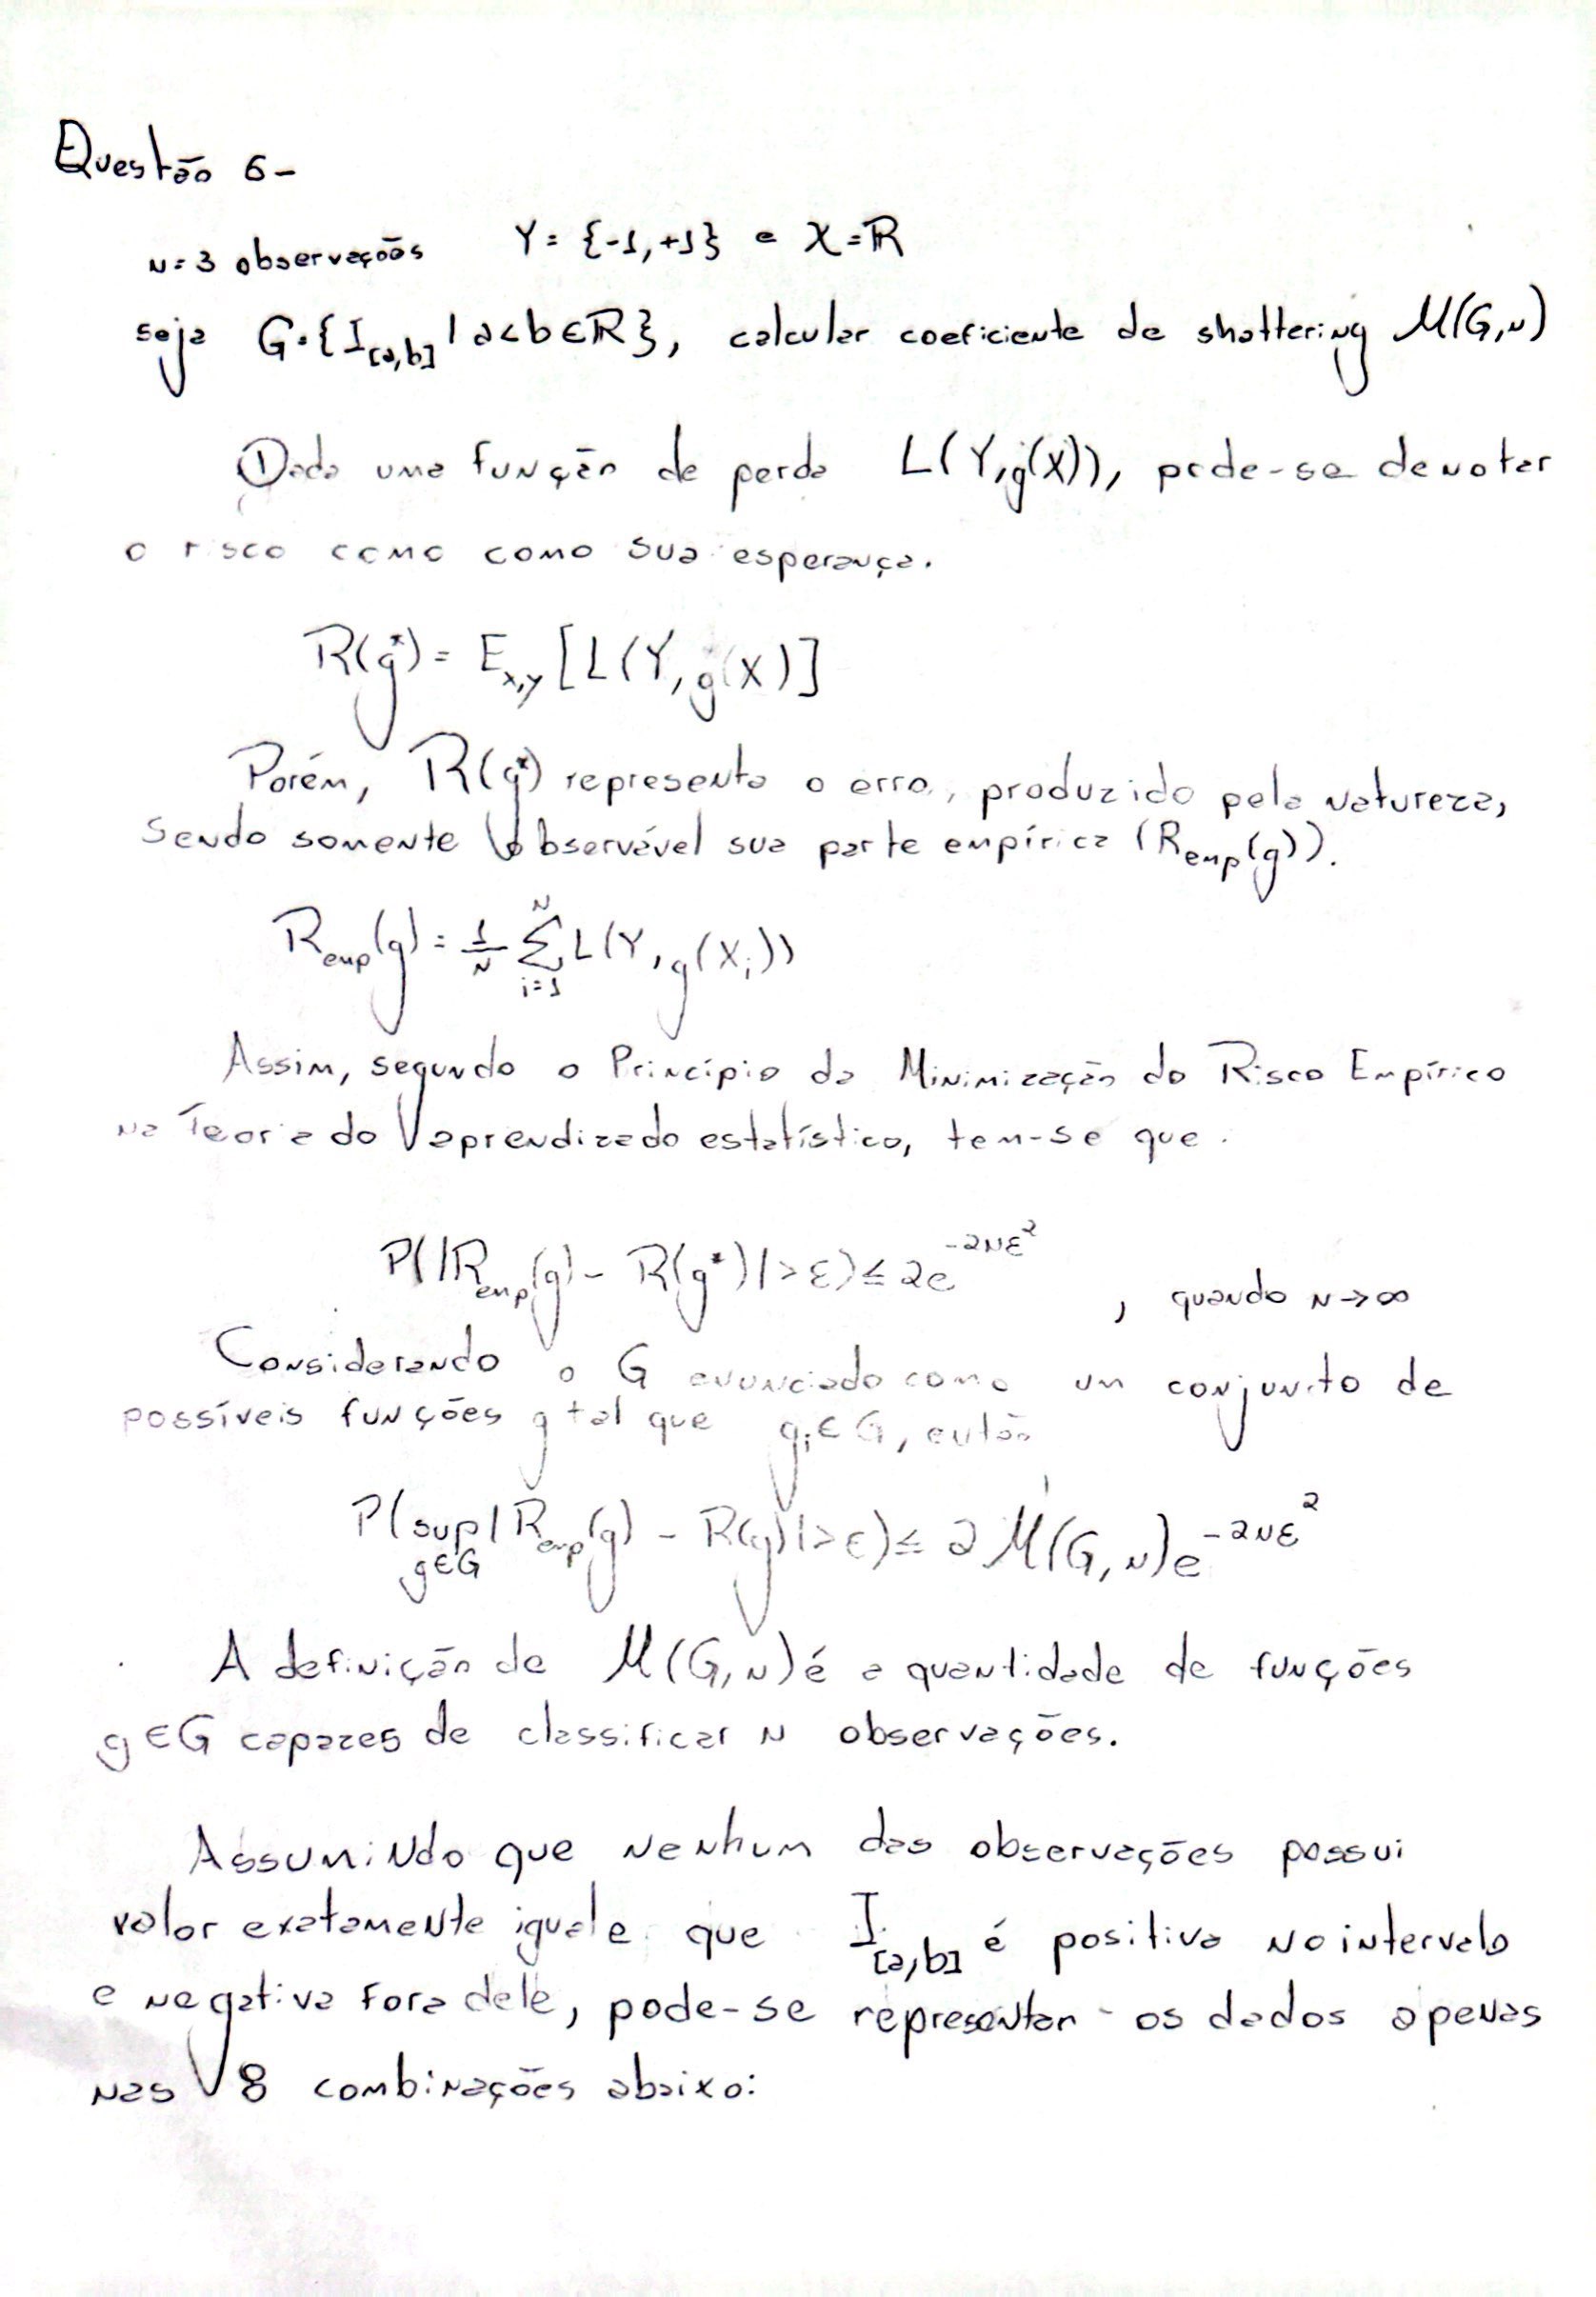 Questão 6-
N=3 observações Y={-1,+1} e X=ℝ
seja G={I[a,b] | a<b∈ℝ}, calcular coeficiente de shattering M(G,N)
① Dada uma função de perda L(Y,g(X)), pode-se denotar
o risco como como sua esperança.
R(g*) = E_x,y [L(Y,g(X)]
Porém, R(g*) representa o erro, produzido pela natureza,
Sendo somente observável sua parte empírica (R_emp(g)).
R_emp(g) = 1/N Σ_{i=1}^{N} L(Y,g(X_i))
Assim, segundo o Princípio da Minimização do Risco Empírico
na Teoria do aprendizado estatístico, tem-se que.
P(|R_emp(g) - R(g*)|>ε) ≤ 2e^{-2Nε²}, quando N→∞
Considerando o G enunciado como um conjunto de
possíveis funções g tal que g_i∈G, então
P(sup_{g∈G} |R_emp(g) - R(g)|>ε) ≤ 2 M(G,N)e^{-2Nε²}
A definição de M(G,N) é a quantidade de funções
g∈G capazes de classificar N observações.
Assumindo que nenhum das observações possui
valor exatamente igual e que I[a,b] é positiva no intervalo
e negativa fora dele, pode-se representar os dados apenas
nas 8 combinações abaixo: